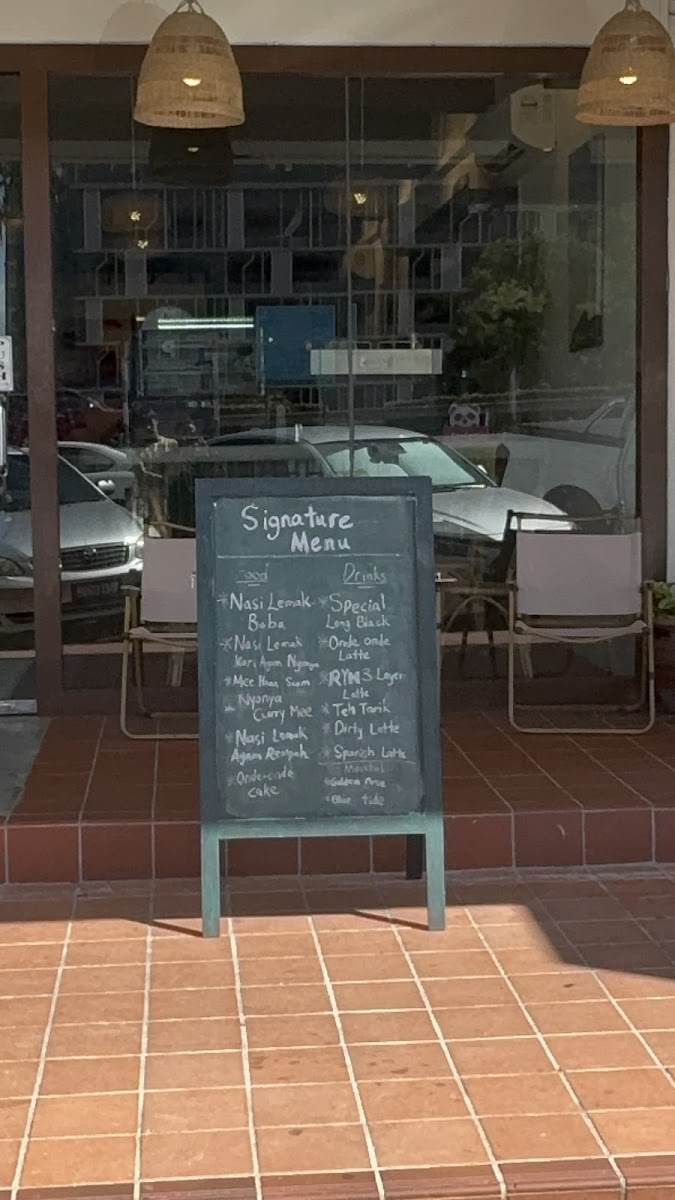 Signature
Menu
Food
* Nasi Lemak
Baba
* Nasi Lemak
Kari Ayam Nyonya
* Mee Hoon Siam
Nyonya
Curry Mee
* Nasi Lemak
Ayam Rempah
* Onde-onde
cake
Drinks
* Special
Long Black
* Onde onde
Latte
* RYN 3 Layer
Latte
* Teh Tarik
* Dirty Latte
* Spanish Latte
Mocktail
* Golden
* Blue tide